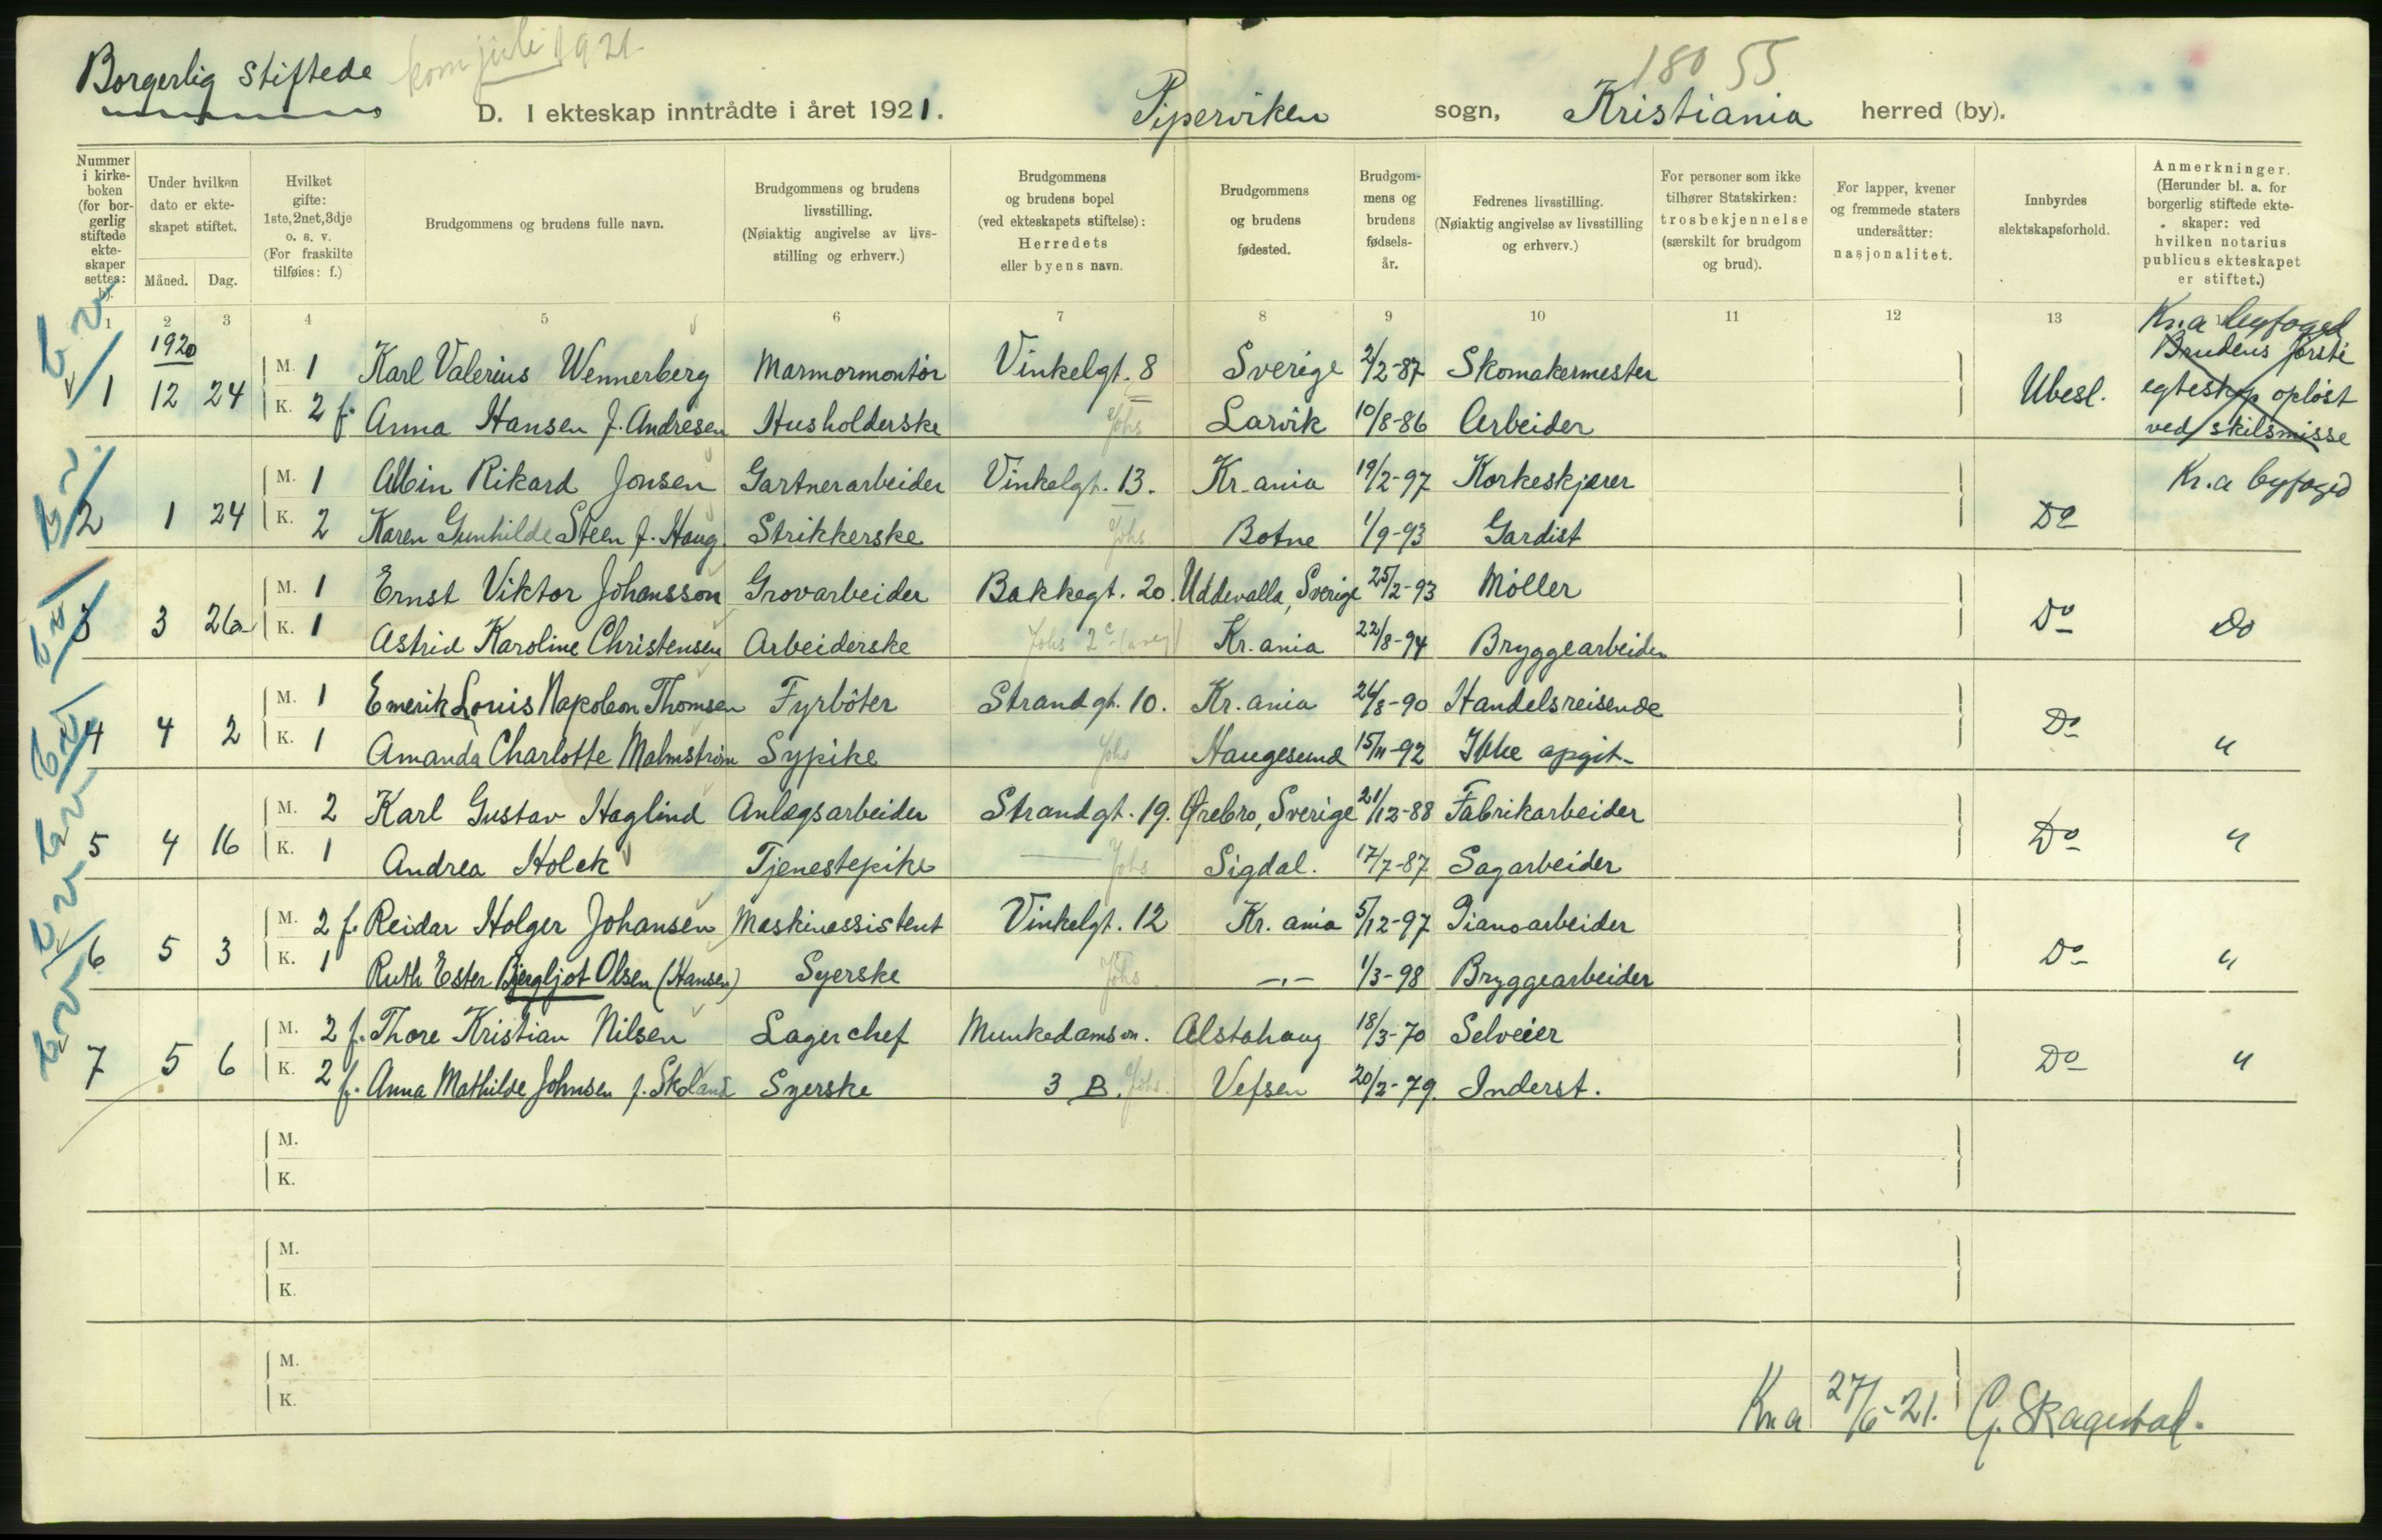 Borgerlig stiftede
kom juli 1921.
180 55
D. I ekteskap inntrådte i året 1921. Piperviken sogn, Kristiania herred (by).
Nummer i kirke-boken (for bor-gerlig stiftede ekte-skaper settes: b).
Under hvilken dato er ekte-skapet stiftet.
Måned. Dag.
Hvilket gifte: 1ste, 2net, 3dje o. s. v. (For fraskilte tilføies: f.)
Brudgommens og brudens fulle navn.
Brudgommens og brudens livsstilling. (Nøiaktig angivelse av livs-stilling og erhverv.)
Brudgommens og brudens bopel (ved ekteskapets stiftelse): Herredets eller byens navn.
Brudgommens og brudens fødested.
Brudgom-mens og brudens fødsels-år.
Fedrenes livsstilling. (Nøiaktig angivelse av livsstilling og erhverv.)
For personer som ikke tilhører Statskirken: trosbekjennelse (særskilt for brudgom og brud).
For lapper, kvener og fremmede staters undersåtter: nasjonalitet.
Innbyrdes slektskapsforhold.
Anmerkninger. (Herunder bl. a. for borgerlig stiftede ekte-skaper: ved hvilken notarius publicus ekteskapet er stiftet.)
1 2 3 4 5 6 7 8 9 10 11 12 13
1920
Kr.a byfoged
Brudens første egteskap opløst ved skilsmisse
1 12 24 M. 1 Karl Valerius Wennerberg Marmormontør Vinkelgt. 8 Sverige 2/2-87 Skomakermester Ubesl.
K. 2 f. Anna Hansen f. Andresen Husholderske Johs Larvik 10/8-86 Arbeider
2 1 24 M. 1 Albin Rikard Jonsen Gartnerarbeider Vinkelgt. 13. Kr.ania 19/2-97 Korkeskjærer Do Kr.a byfoged
K. 2 Karen Gunhilde Steen f. Haug. Strikkerske Johs. Botne 1/9-93 Gardist
3 3 26 M. 1 Ernst Viktor Johansson Grovarbeider Bakkegt. 20. Uddevalla, Sverige 25/2-93 Møller Do Do
K. 1 Astrid Karoline Christensen Arbeiderske Johs Kr.ania 22/8-94 Bryggearbeider
4 4 2 M. 1 Emerik Louis Napoleon Thomsen Fyrbøter Strandgt. 10. Kr.ania 24/8-90 Handelsreisende Do "
K. 1 Amanda Charlotte Malmstrøm Sypike Johs Haugesund 15/11-92 Ikke opgit.
5 4 16 M. 2 Karl Gustav Haglind Anlægsarbeider Strandgt. 19. Ørebro, Sverige 21/12-88 Fabrikarbeider Do "
K. 1 Andrea Holek Tjenestepike — Johs Sigdal. 17/7-87 Sagarbeider
6 5 3 M. 2 f. Reidar Holger Johansen Maskinassistent Vinkelgt. 12 Kr.ania 5/12-97 Pianoarbeider Do "
K. 1 Ruth Ester Bjergljot Olsen (Hansen) Syerske Johs —"— 1/3-98 Bryggearbeider
7 5 6 M. 2 f. Thore Kristian Nilsen Lagerchef Munkedamsvn. Alstahaug 18/3-70 Selveier Do "
K. 2 f. Anna Mathilde Johnsen f. Skoland Syerske 3 B. Johs. Vefsen 20/2-79. Inderst.
M.
K.
M.
K.
M.
K.
Kr.a 27/6-21. G. Skagestad.